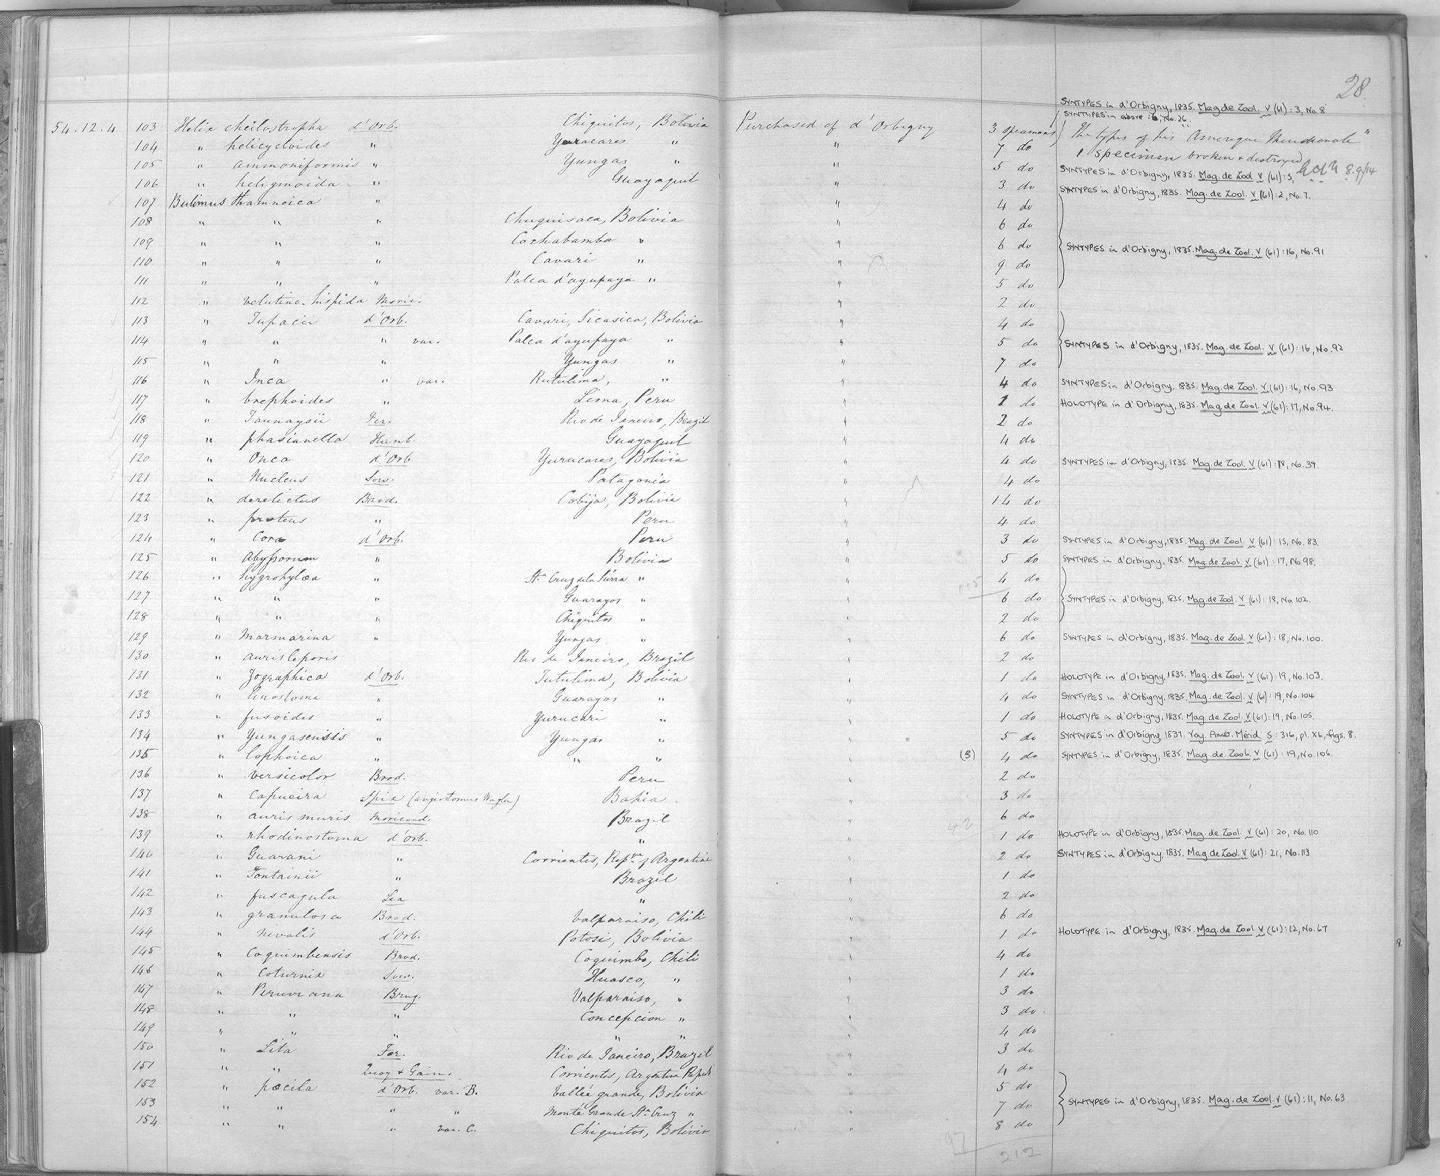 28
SYNTYPES in d'Orbigny, 1835. Mag de Zool. V (61): 3, No. 8
SYNTYPES in above is, No. 26.
54.12.4 103 Helix cheilostropha d'Orb. Chiquitos, Bolivia Purchased of d'Orbigny 3 specimens The types of his "Amerique Meridionale"
104 " helicycloides " Yuracares " " 7 do 1 specimen broken & destroyed
105 " ammoniformis " Yungas " " 5 do SYNTYPES in d'Orbigny, 1835. Mag. de Zool V (61): 3,
106 " heligmoida " Guayaquil " 3 do SYNTYPES in d'Orbigny, 1835. Mag. de Zool. V (61): 2, No. 7.
107 Bulimus thamnoica " " 4 do
108 " " " Chuquisaca, Bolivia " 6 do
109 " " " Cochabamba " " 6 do SYNTYPES in d'Orbigny, 1835. Mag. de Zool. V (61): 16, No. 91
110 " " " Cavari " " 9 do
111 " " " Palca d'ayupaya " " 5 do
112 " velutino-hispida Moric. " 2 do
113 " Tupacii d'Orb. Cavari, Sicasica, Bolivia " 4 do
114 " " " var. Palca d'ayupaya " " 5 do SYNTYPES in d'Orbigny, 1835. Mag. de Zool. V (61): 16, No. 92
115 " " " Yungas " " 7 do
116 " Inca " var. Rutulima, " " 4 do SYNTYPES in d'Orbigny, 1835. Mag. de Zool. V (61): 16, No. 93
117 " brephoides " Lima, Peru " 1 do HOLOTYPE in d'Orbigny, 1835. Mag. de Zool. V (61): 17, No. 94.
118 " Taunaysii Fer. Rio de Janeiro, Brazil " 2 do
119 " phasianella Humb. Guayaquil " 4 do
120 " Onca d'Orb Yuracares, Bolivia " 4 do SYNTYPES in d'Orbigny, 1835. Mag. de Zool. V (61): 18, No. 39.
121 " Nucleus Sow. Patagonia " 4 do
122 " derelictus Brod. Cobija, Bolivia " 14 do
123 " proteus " Peru " 4 do
124 " Cora d'Orb. Peru " 3 do SYNTYPES in d'Orbigny, 1835. Mag. de Zool. V (61): 13, No. 83.
125 " Abyssorum " Bolivia " 5 do SYNTYPES in d'Orbigny, 1835. Mag. de Zool. V (61): 17, No. 98.
126 " hygrohylæa " Sta. Cruz de la Sierra " " 4 do
127 " " " Guarayos " " 6 do SYNTYPES in d'Orbigny, 1835. Mag. de Zool. V (61): 18, No. 102.
128 " " " Chiquitos " " 2 do
129 " Marmarina " Yungas " " 6 do SYNTYPES in d'Orbigny, 1835. Mag. de Zool. V (61): 18, No. 100.
130 " aurisleporis Rio de Janeiro, Brazil " 2 do
131 " Zographica d'Orb. Tutulima, Bolivia " 1 do HOLOTYPE in d'Orbigny, 1835. Mag. de Zool. V (61): 19, No. 103.
132 " linostoma " Guarayos " " 4 do SYNTYPES in d'Orbigny, 1835. Mag. de Zool. V (61): 19, No. 104
133 " fusoides " Yurucari " " 1 do HOLOTYPE in d'Orbigny, 1835. Mag. de Zool. V (61): 19, No. 105.
134 " Yungasensis " Yungas " " 5 do SYNTYPES in d'Orbigny 1837. Voy. Amér. Mérid. 5: 316, pl. XL, figs. 8.
135 " lophoica " " " " (3) 4 do SYNTYPES in d'Orbigny, 1835. Mag. de Zool. V (61): 19, No. 106
136 " versicolor Brod. Peru " 2 do
137 " capueira Spix (angiostomus Wagler) Bahia " 3 do
138 " auris muris Moricand. Brazil " 6 do
139 " rhodinostoma d'Orb. " " 1 do HOLOTYPE in d'Orbigny, 1835. Mag. de Zool. V (61): 20, No. 110
140 " Guarani " Corrientes, Repub. of Argentine " 2 do SYNTYPES in d'Orbigny, 1835. Mag. de Zool. V (61): 21, No. 113
141 " Fontainii " Brazil " 1 do
142 " fuscagula Lea " " 2 do
143 " granulosa Brod. Valparaiso, Chili " 6 do
144 " nivalis d'Orb. Potosi, Bolivia " 1 do HOLOTYPE in d'Orbigny, 1835. Mag. de Zool. V (61): 12, No. 67
145 " Coquimbensis Brod. Coquimbo, Chili " 4 do
146 " Coturnix Sow. Huasco, " " 1 do
147 " Peruviana Brug. Valparaiso, " " 3 do
148 " " " Concepcion " " 3 do
149 " " " " " " 4 do
150 " Lita Fer. Rio de Janeiro, Brazil " 3 do
151 " " Quoy & Gaim. Corrientes, Argentine Repub. " 4 do
152 " pæcila d'Orb. var. B. Vallée grande, Bolivia " 5 do
153 " " " " Monte Grande Sta. Cruz " " 7 do SYNTYPES in d'Orbigny, 1835. Mag. de Zool. V (61): 11, No. 63
154 " " " var. C. Chiquitos, Bolivia " 8 do
97 212